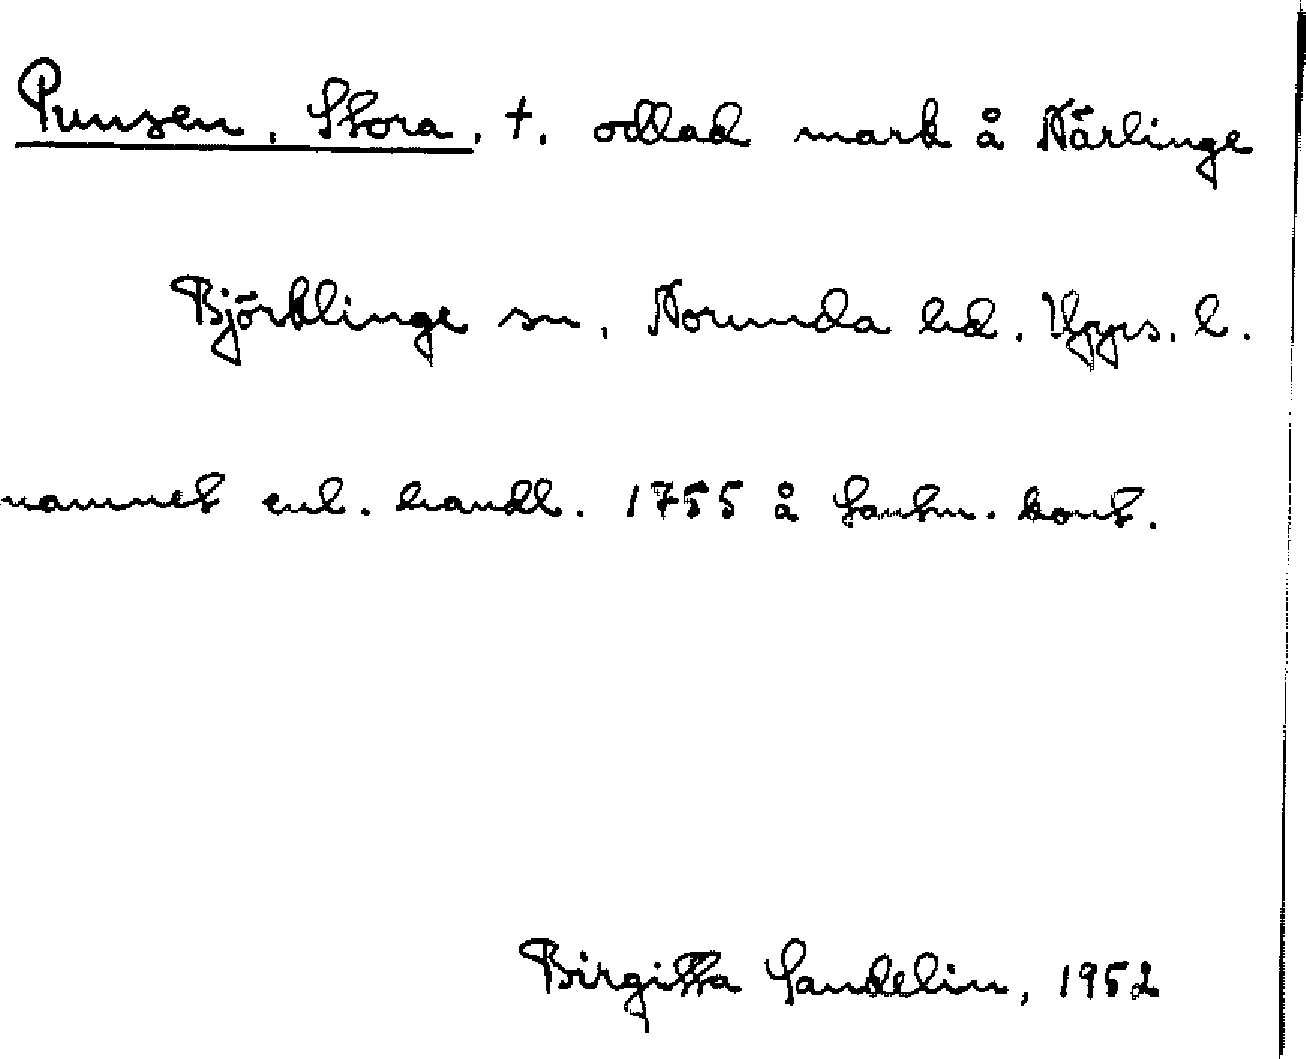 Punsen, Stora, †. odlad mark å Närlinge
Björklinge sn, Norunda hd. Upps. l.
namnet enl. handl. 1755 å lantm. kont.
Birgitta Sandelin, 1952